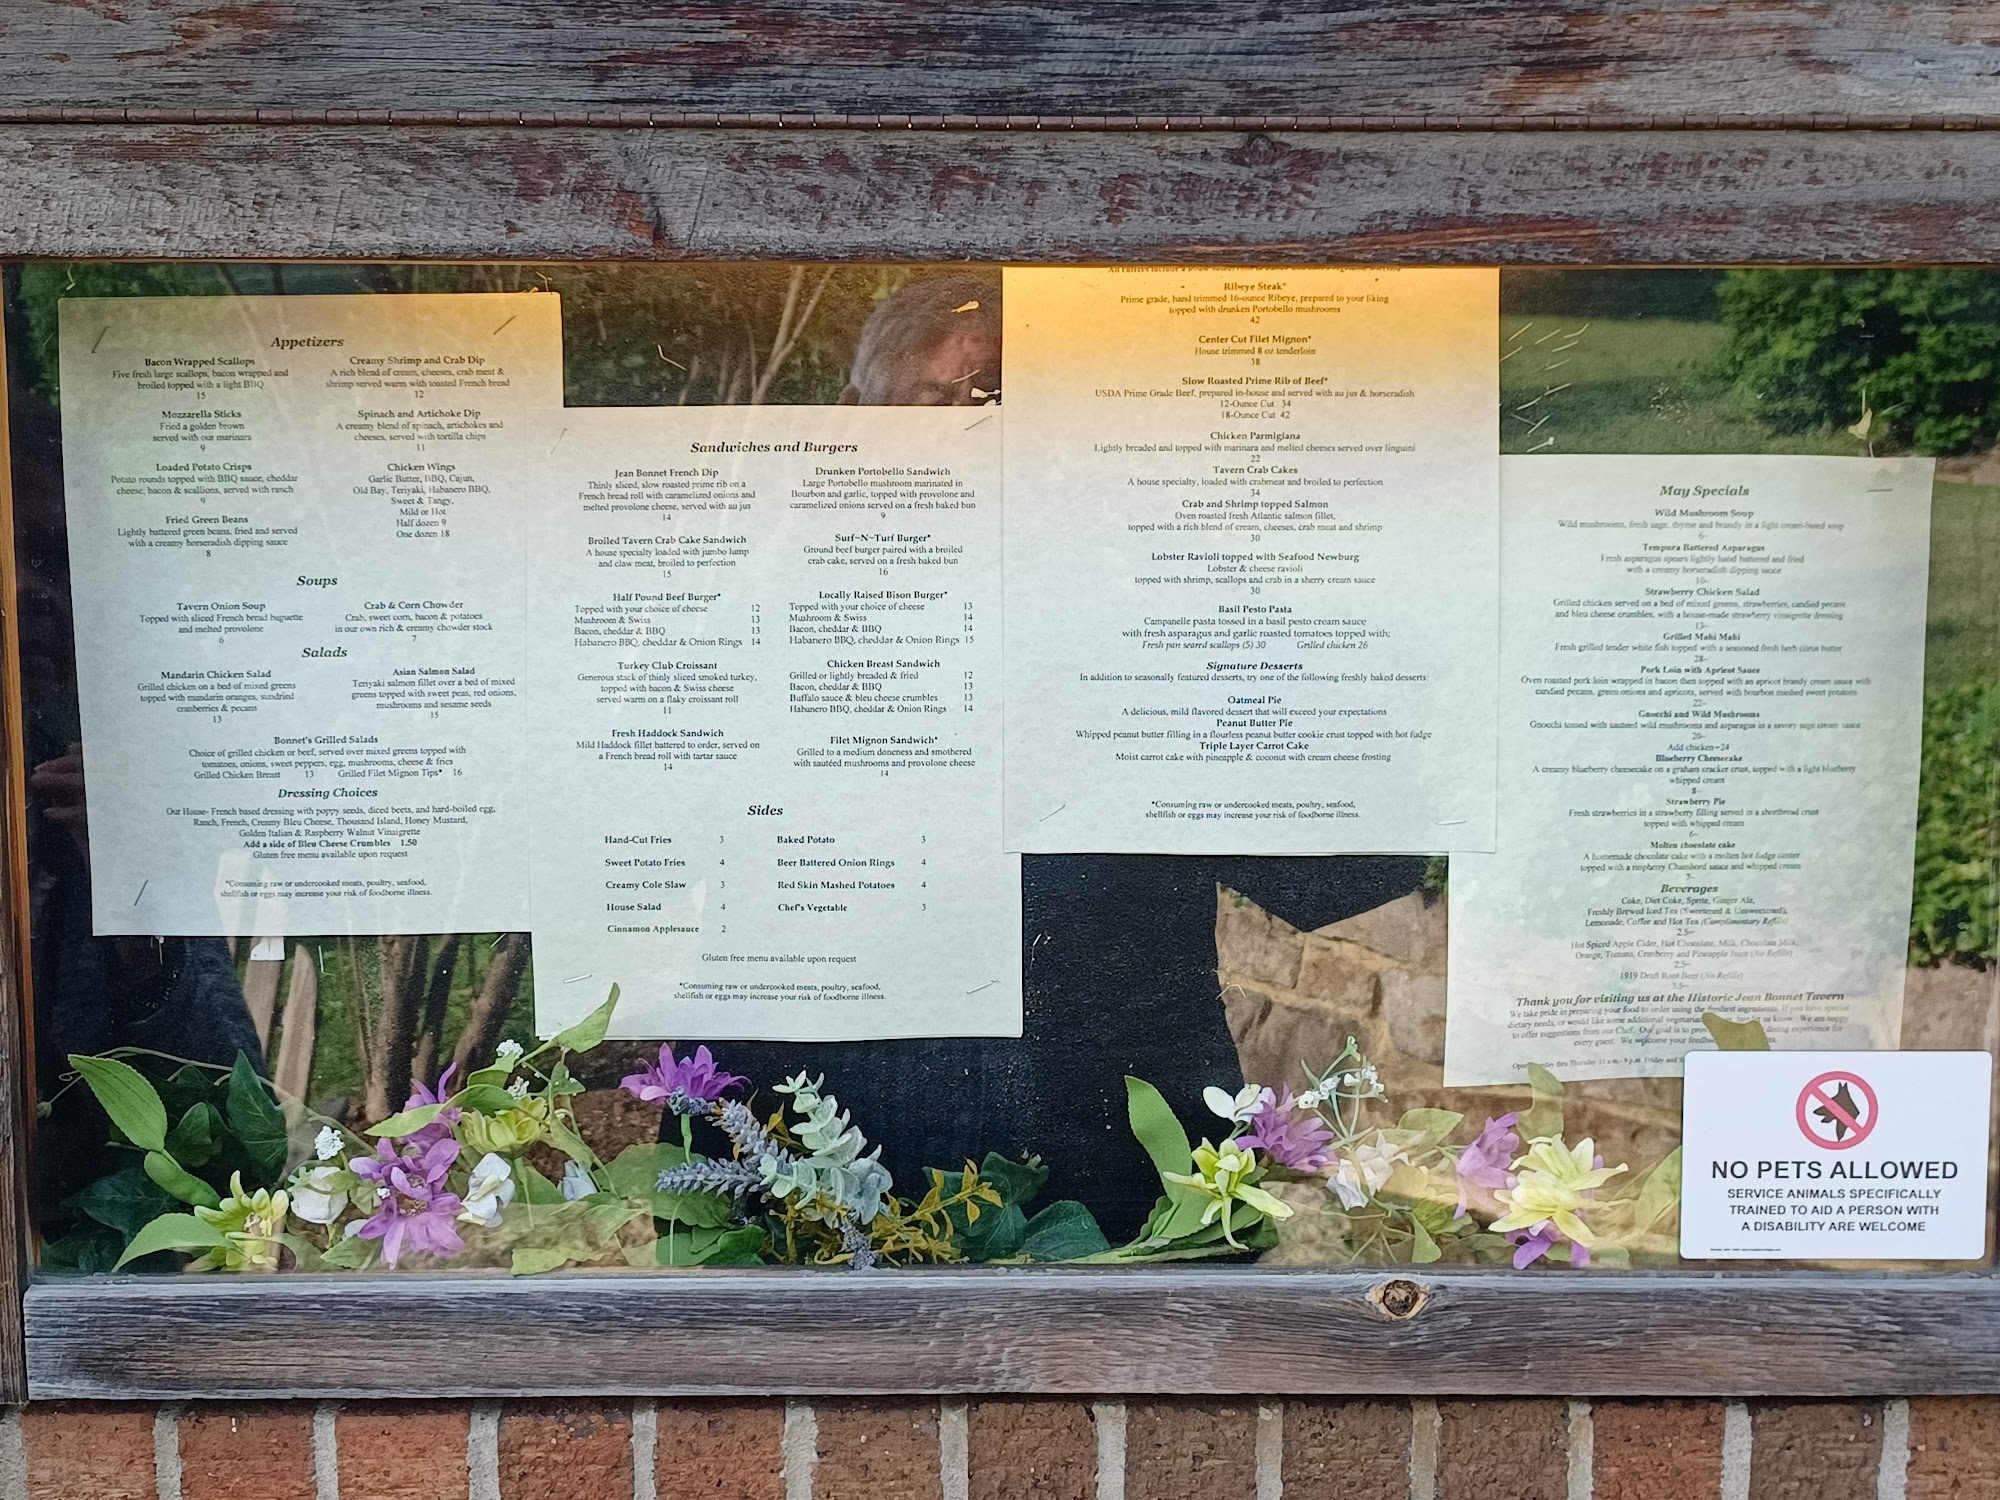 Appetizers
Bacon Wrapped Scallops
Five fresh large scallops, bacon wrapped and
broiled topped with a light BBQ
15
Mozzarella Sticks
Fried a golden brown
served with our marinara
9
Loaded Potato Crisps
Potato rounds topped with BBQ sauce, cheddar
cheese, bacon & scallions, served with ranch
9
Fried Green Beans
Lightly buttered green beans, fried and served
with a creamy horseradish dipping sauce
8
Creamy Shrimp and Crab Dip
A rich blend of cream, cheeses, crab meat &
shrimp served warm with toasted French bread
12
Spinach and Artichoke Dip
A creamy blend of spinach, artichokes and
cheeses, served with tortilla chips
11
Chicken Wings
Garlic Butter, BBQ, Cajun,
Old Bay, Teriyaki, Habanero BBQ,
Sweet & Tangy,
Mild or Hot
Half dozen 9
One dozen 18
Soups
Tavern Onion Soup
Topped with sliced French bread baguette
and melted provolone
6
Crab & Corn Chowder
Crab, sweet corn, bacon & potatoes
in our own rich & creamy chowder stock
7
Salads
Mandarin Chicken Salad
Grilled chicken on a bed of mixed greens
topped with mandarin oranges, sundried
cranberries & pecans
13
Asian Salmon Salad
Teriyaki salmon fillet over a bed of mixed
greens topped with sweet peas, red onions,
mushrooms and sesame seeds
15
Bonnet's Grilled Salads
Choice of grilled chicken or beef, served over mixed greens topped with
tomatoes, onions, sweet peppers, egg, mushrooms, cheese & fries
Grilled Chicken Breast 13 Grilled Filet Mignon Tips* 16
Dressing Choices
Our House- French based dressing with poppy seeds, diced beets, and hard-boiled egg,
Ranch, French, Creamy Bleu Cheese, Thousand Island, Honey Mustard,
Golden Italian & Raspberry Walnut Vinaigrette
Add a side of Bleu Cheese Crumbles 1.50
Gluten free menu available upon request
*Consuming raw or undercooked meats, poultry, seafood,
shellfish or eggs may increase your risk of foodborne illness.
Sandwiches and Burgers
Jean Bonnet French Dip
Thinly sliced, slow roasted prime rib on a
French bread roll with caramelized onions and
melted provolone cheese, served with au jus
14
Broiled Tavern Crab Cake Sandwich
A house specialty loaded with jumbo lump
and claw meat, broiled to perfection
15
Half Pound Beef Burger*
Topped with your choice of cheese 12
Mushroom & Swiss 13
Bacon, cheddar & BBQ 13
Habanero BBQ, cheddar & Onion Rings 14
Turkey Club Croissant
Generous stack of thinly sliced smoked turkey,
topped with bacon & Swiss cheese
served warm on a flaky croissant roll
11
Fresh Haddock Sandwich
Mild Haddock fillet battered to order, served on
a French bread roll with tartar sauce
14
Drunken Portobello Sandwich
Large Portobello mushroom marinated in
Bourbon and garlic, topped with provolone and
caramelized onions served on a fresh baked bun
9
Surf~N~Turf Burger*
Ground beef burger paired with a broiled
crab cake, served on a fresh baked bun
16
Locally Raised Bison Burger*
Topped with your choice of cheese 13
Mushroom & Swiss 14
Bacon, cheddar & BBQ 14
Habanero BBQ, cheddar & Onion Rings 15
Chicken Breast Sandwich
Grilled or lightly breaded & fried 12
Bacon, cheddar & BBQ 13
Buffalo sauce & bleu cheese crumbles 13
Habanero BBQ, cheddar & Onion Rings 14
Filet Mignon Sandwich*
Grilled to a medium doneness and smothered
with sautéed mushrooms and provolone cheese
14
Sides
Hand-Cut Fries 3 Baked Potato 3
Sweet Potato Fries 4 Beer Battered Onion Rings 4
Creamy Cole Slaw 3 Red Skin Mashed Potatoes 4
House Salad 4 Chef's Vegetable 3
Cinnamon Applesauce 2
Gluten free menu available upon request
*Consuming raw or undercooked meats, poultry, seafood,
shellfish or eggs may increase your risk of foodborne illness.
Ribeye Steak*
Prime grade, hand trimmed 16-ounce Ribeye, prepared to your liking
topped with drunken Portobello mushrooms
42
Center Cut Filet Mignon*
House trimmed 8 oz tenderloin
38
Slow Roasted Prime Rib of Beef*
USDA Prime Grade Beef, prepared in-house and served with au jus & horseradish
12-Ounce Cut 34
18-Ounce Cut 42
Chicken Parmigiana
Lightly breaded and topped with marinara and melted cheeses served over linguini
22
Tavern Crab Cakes
A house specialty, loaded with crabmeat and broiled to perfection
34
Crab and Shrimp topped Salmon
Oven roasted fresh Atlantic salmon fillet,
topped with a rich blend of cream, cheeses, crab meat and shrimp
30
Lobster Ravioli topped with Seafood Newburg
Lobster & cheese ravioli
topped with shrimp, scallops and crab in a sherry cream sauce
30
Basil Pesto Pasta
Campanelle pasta tossed in a basil pesto cream sauce
with fresh asparagus and garlic roasted tomatoes topped with;
Fresh pan seared scallops (5) 30 Grilled chicken 26
Signature Desserts
In addition to seasonally featured desserts, try one of the following freshly baked desserts:
Oatmeal Pie
A delicious, mild flavored dessert that will exceed your expectations
Peanut Butter Pie
Whipped peanut butter filling in a flourless peanut butter cookie crust topped with hot fudge
Triple Layer Carrot Cake
Moist carrot cake with pineapple & coconut with cream cheese frosting
*Consuming raw or undercooked meats, poultry, seafood,
shellfish or eggs may increase your risk of foodborne illness.
May Specials
Wild Mushroom Soup
Wild mushrooms, fresh sage, thyme and brandy in a light cream-based soup
6~
Tempura Battered Asparagus
Fresh asparagus spears lightly hand battered and fried
with a creamy horseradish dipping sauce
10~
Strawberry Chicken Salad
Grilled chicken served on a bed of mixed greens, strawberries, candied pecans
and bleu cheese crumbles, with a house-made strawberry vinaigrette dressing
13~
Grilled Mahi Mahi
Fresh grilled tender white fish topped with a seasoned fresh herb citrus butter
Pork Loin with Apricot Sauce
Oven roasted pork loin wrapped in bacon then topped with an apricot brandy cream sauce with
candied pecans, green onions and apricots, served with bourbon mashed sweet potatoes
22~
Gnocchi and Wild Mushrooms
Gnocchi tossed with sauteed wild mushrooms and asparagus in a savory sage cream sauce
20~
Add chicken~24
Blueberry Cheesecake
A creamy blueberry cheesecake on a graham cracker crust, topped with a light blueberry
whipped cream
8~
Strawberry Pie
Fresh strawberries in a strawberry filling served in a shortbread crust
topped with whipped cream
6~
Molten chocolate cake
A homemade chocolate cake with a molten hot fudge center
topped with a raspberry Chambord sauce and whipped cream
7~
Beverages
Coke, Diet Coke, Sprite, Ginger Ale,
Freshly Brewed Iced Tea (Sweetened & Unsweetened),
Lemonade, Coffee and Hot Tea (Complimentary Refills)
2.5~
Hot Spiced Apple Cider, Hot Chocolate, Milk, Chocolate Milk,
Orange, Tomato, Cranberry and Pineapple Juice (No Refills)
2.5~
1919 Draft Root Beer (No Refills)
3.5~
Thank you for visiting us at the Historic Jean Bonnet Tavern
We take pride in preparing your food to order using the freshest ingredients. If you have special
dietary needs, or would like some additional vegetarian let us know. We are happy
to offer suggestions from our Chef. Our goal is to dining experience for
every guest. We welcome your
Thursday 11 a.m.- 9 p.m. Friday and
NO PETS ALLOWED
SERVICE ANIMALS SPECIFICALLY
TRAINED TO AID A PERSON WITH
A DISABILITY ARE WELCOME